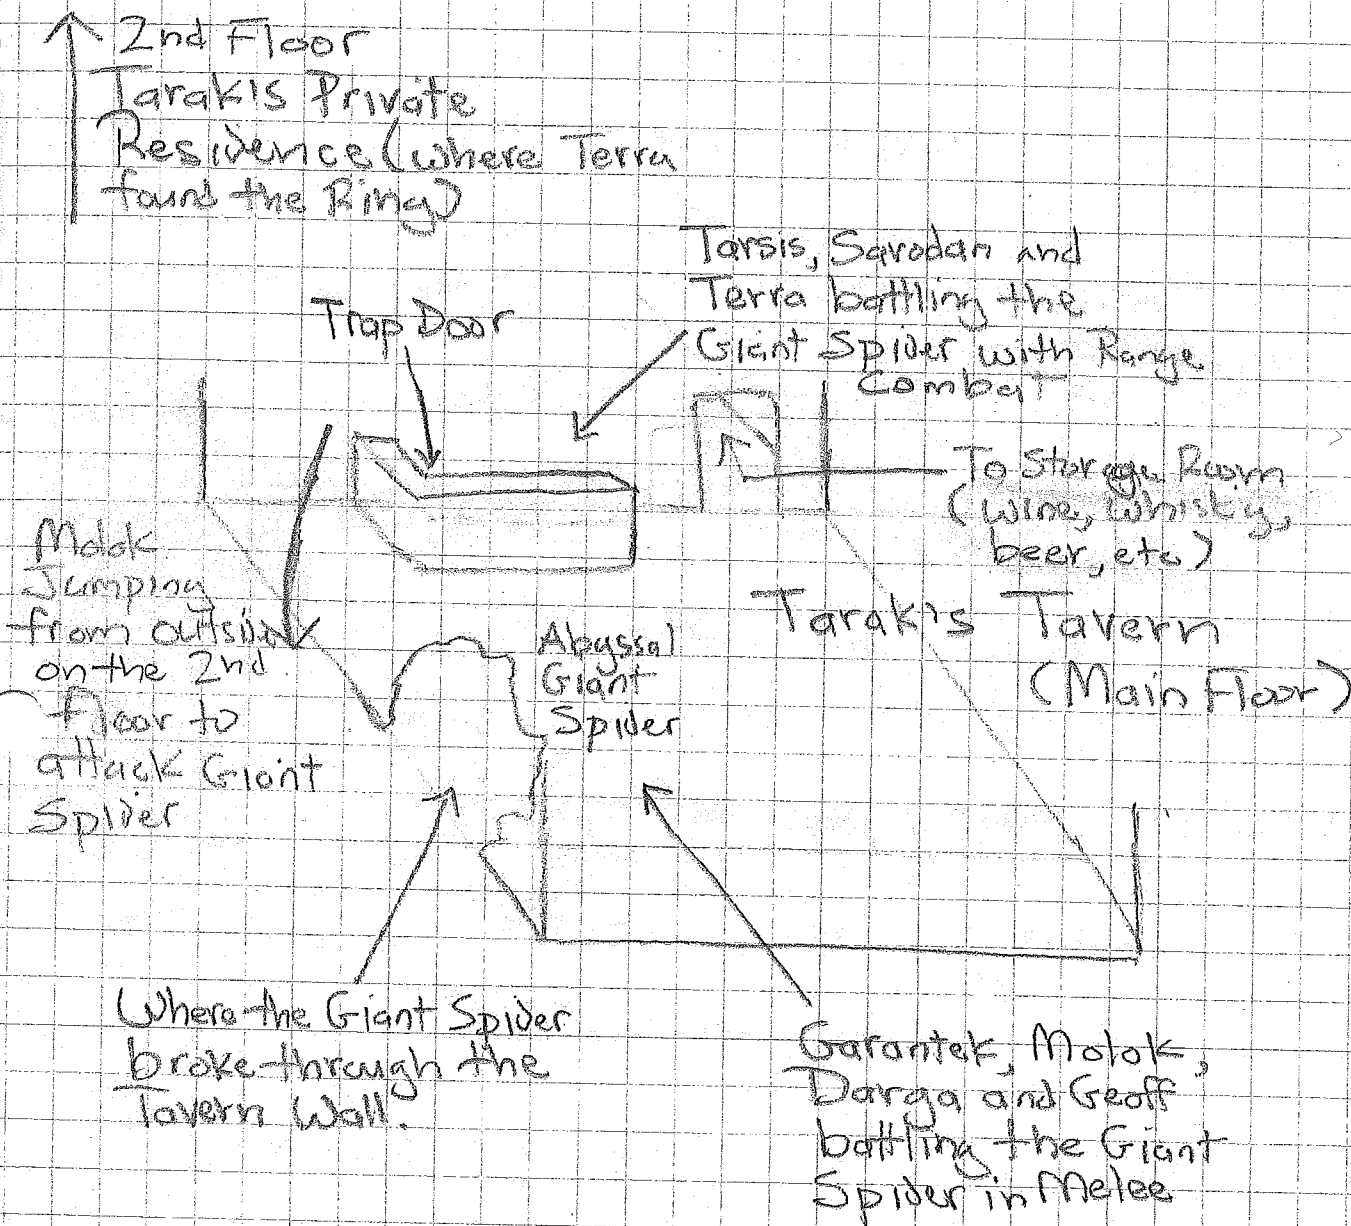 2nd Floor
Tarakis Private
Residence (where Terra
found the Ring)
Tarsis, Sarodan and
Terra battling the
Giant Spider with Range
Combat
Trap Door
To Storage Room
(wine, whisky,
beer, etc)
Molok
Jumping
from outside
on the 2nd
floor to
attack Giant
Spider
Abyssal
Giant
Spider
Tarakis Tavern
(Main Floor)
Where the Giant Spider
broke through the
Tavern Wall.
Garantek, Molok,
Darga and Geoff
battling the Giant
Spider in Melee